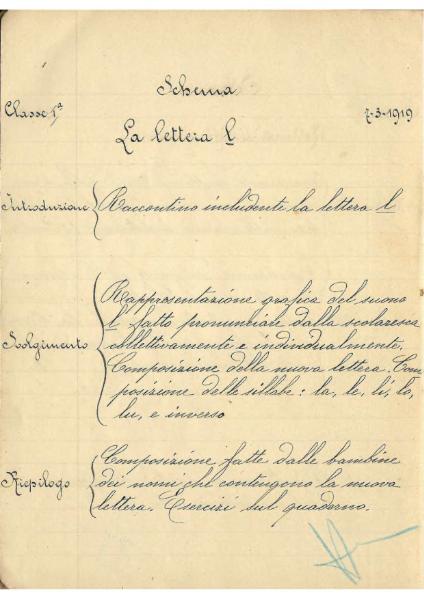 Schema
Classe 1ª
7-3-1919
La lettera l
Introduzione
Raccontino includente la lettera l
Svolgimento
Rappresentazione grafica del suono
l fatto pronunciare dalla scolaresca
collettivamente e individualmente.
Composizione della nuova lettera. Com
posizione delle sillabe: la, le, li, lo,
lu, e inverso
Riepilogo
Composizione fatte dalle bambine
dei nomi che contengono la nuova
lettera. Esercizi sul quaderno.